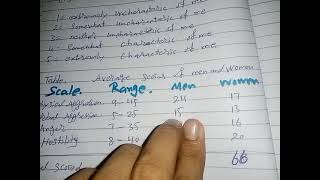 1 = extremely uncharacteristic of me
2 = Somewhat uncharacteristic of me
3 = neither uncharacteristic of me
4 = Somewhat characteristic of me.
5 = extremely characteristic of me.
Table. Average scores of men and women
Scale. Range. Men Women
aggression 9-45 24 17
aggression 5-25 15 13
Anger 7-35 16
Hostility 8-40 20
scored 66